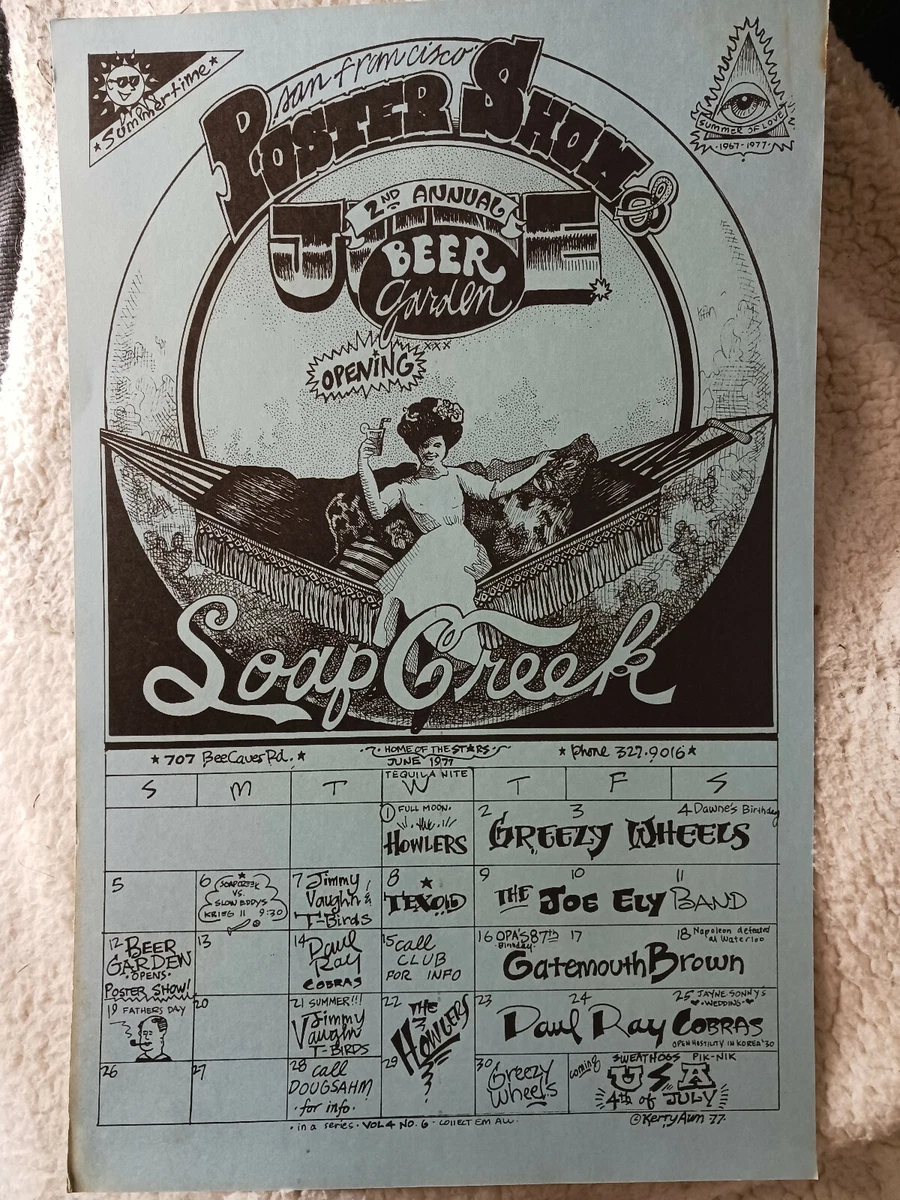 Summertime
san francisco
POSTER SHOW
&
SUMMER OF LOVE
·1967·1977·
2ND ANNUAL
JUNE
BEER
garden
xxx
OPENING
Soap Creek
★ 707 BeeCaves Rd. ★
HOME OF THE STARS
★ Phone 327.9016 ★
JUNE 1977
TEQUILA NITE
S M T W T F S
1 FULL MOON.
HOWLERS
2 3 4 Dawne's Birthday
GREEZY WHEELS
5
6 SOAPCREEK
VS.
SLOW EDDYS
KRIEG II 9:30
7 Jimmy
Vaughn &
T-Birds
8
TEXOID
9 10 11
THE JOE ELY BAND
12 BEER
GARDEN
·OPENS·
POSTER SHOW!
13
14
Paul
Ray
COBRAS
15 call
CLUB
FOR INFO
16 OPA'S 87th
Birthday
17
18 Napoleon defeated
at Waterloo
Gatemouth Brown
19 FATHERS DAY
20
21 SUMMER!!!
Jimmy
Vaughn
T-BIRDS
22 THE
HOWLERS
23 24 25 JAYNE·SONNY'S
·WEDDING·
Paul Ray COBRAS
OPEN HOSTILITY IN KOREA '50
26
27
28 call
DOUGSAHM
·for info·
29
30
Greezy
Wheels
coming
SWEATHOGS PIK-NIK
USA
4th of JULY
·in a series· VOL 4 NO. 6 · COLLECT EM ALL·
©Kerry Awn 77·